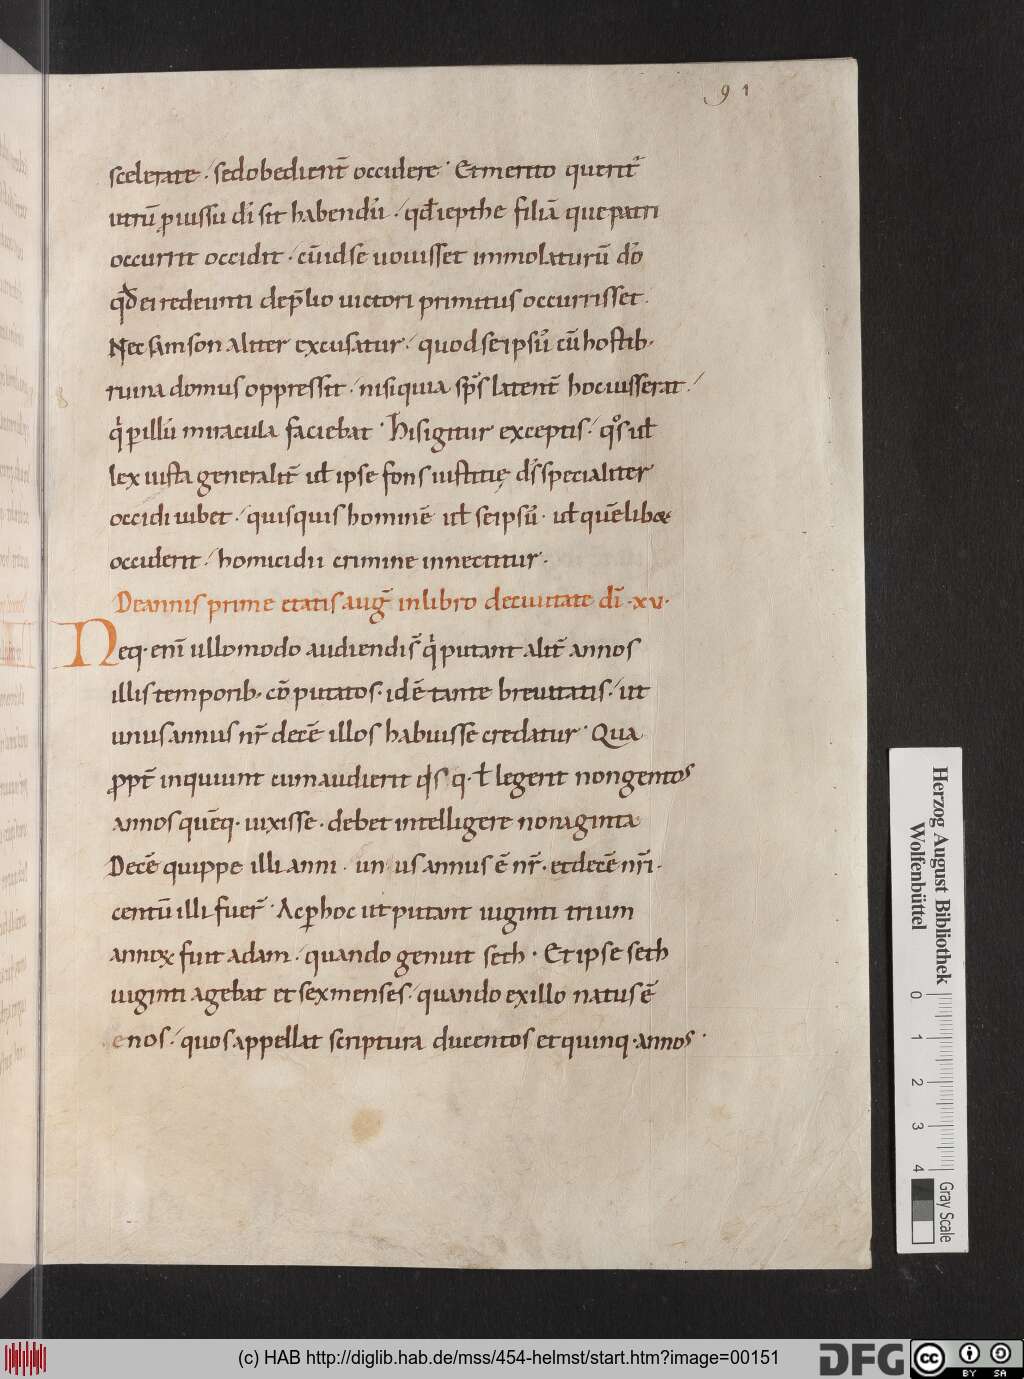 91
scelerate. sedobedient̄ occidere. Et merito querit̄
utrū ꝓ iussu dī sit habendū. qđ iepthe filiā que patri
occurrit occidit. cū id se uouisset immolaturū dō
qđ ei redeunti de p̄lio uictori primitus occurrisset.
Nec samson aliter excusatur. quod se ipsū cū hostib.
ruina domus oppressit. nisi quia sp̄s latent̄ hoc iusserat.
q̇ ꝑ illū miracula faciebat. His igitur exceptis. qͦs ul̄
lex iusta generalit̄ ul̄ ipse fons iustitię dś specialiter
occidi iubet. quisquis hominē ul̄ se ipsū. ul̄ quēlibet
occiderit. homicidii crimine innectitur.
De annis prime etatis auḡ in libro de ciuitate dī. xv.
Neq. enī ullomodo audiendi s̄ q̇ putant alit̄ annos
illis temporib. cō putatos. id ē tante breuitatis. ut
unus annus nr̄ decē illos habuisse credatur. Qua
ꝓpt̄ inquiunt cum audierit q̇s q. ł legerit nongentos
annos quēq. uixisse. debet intelligere nonaginta
Decē quippe illi anni. un us annus ē nr̄. et decē nr̄i.
centū illi fuer̄. Ac ꝑ hoc ut putant uiginti trium
annoꝝ fuit adam. quando genuit seth. Et ipse seth
uiginti agebat et sex menses. quando ex illo natus ē
enos. quos appellat scriptura ducentos et quinq. annos.
Herzog August Bibliothek
Wolfenbüttel
0 1 2 3 4
Gray Scale
(c) HAB http://diglib.hab.de/mss/454-helmst/start.htm?image=00151
DFG
cc BY SA